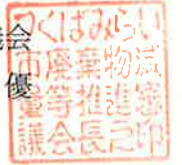 会
優
つくばみらい
市廃棄物減
量等推進審
議会長之印